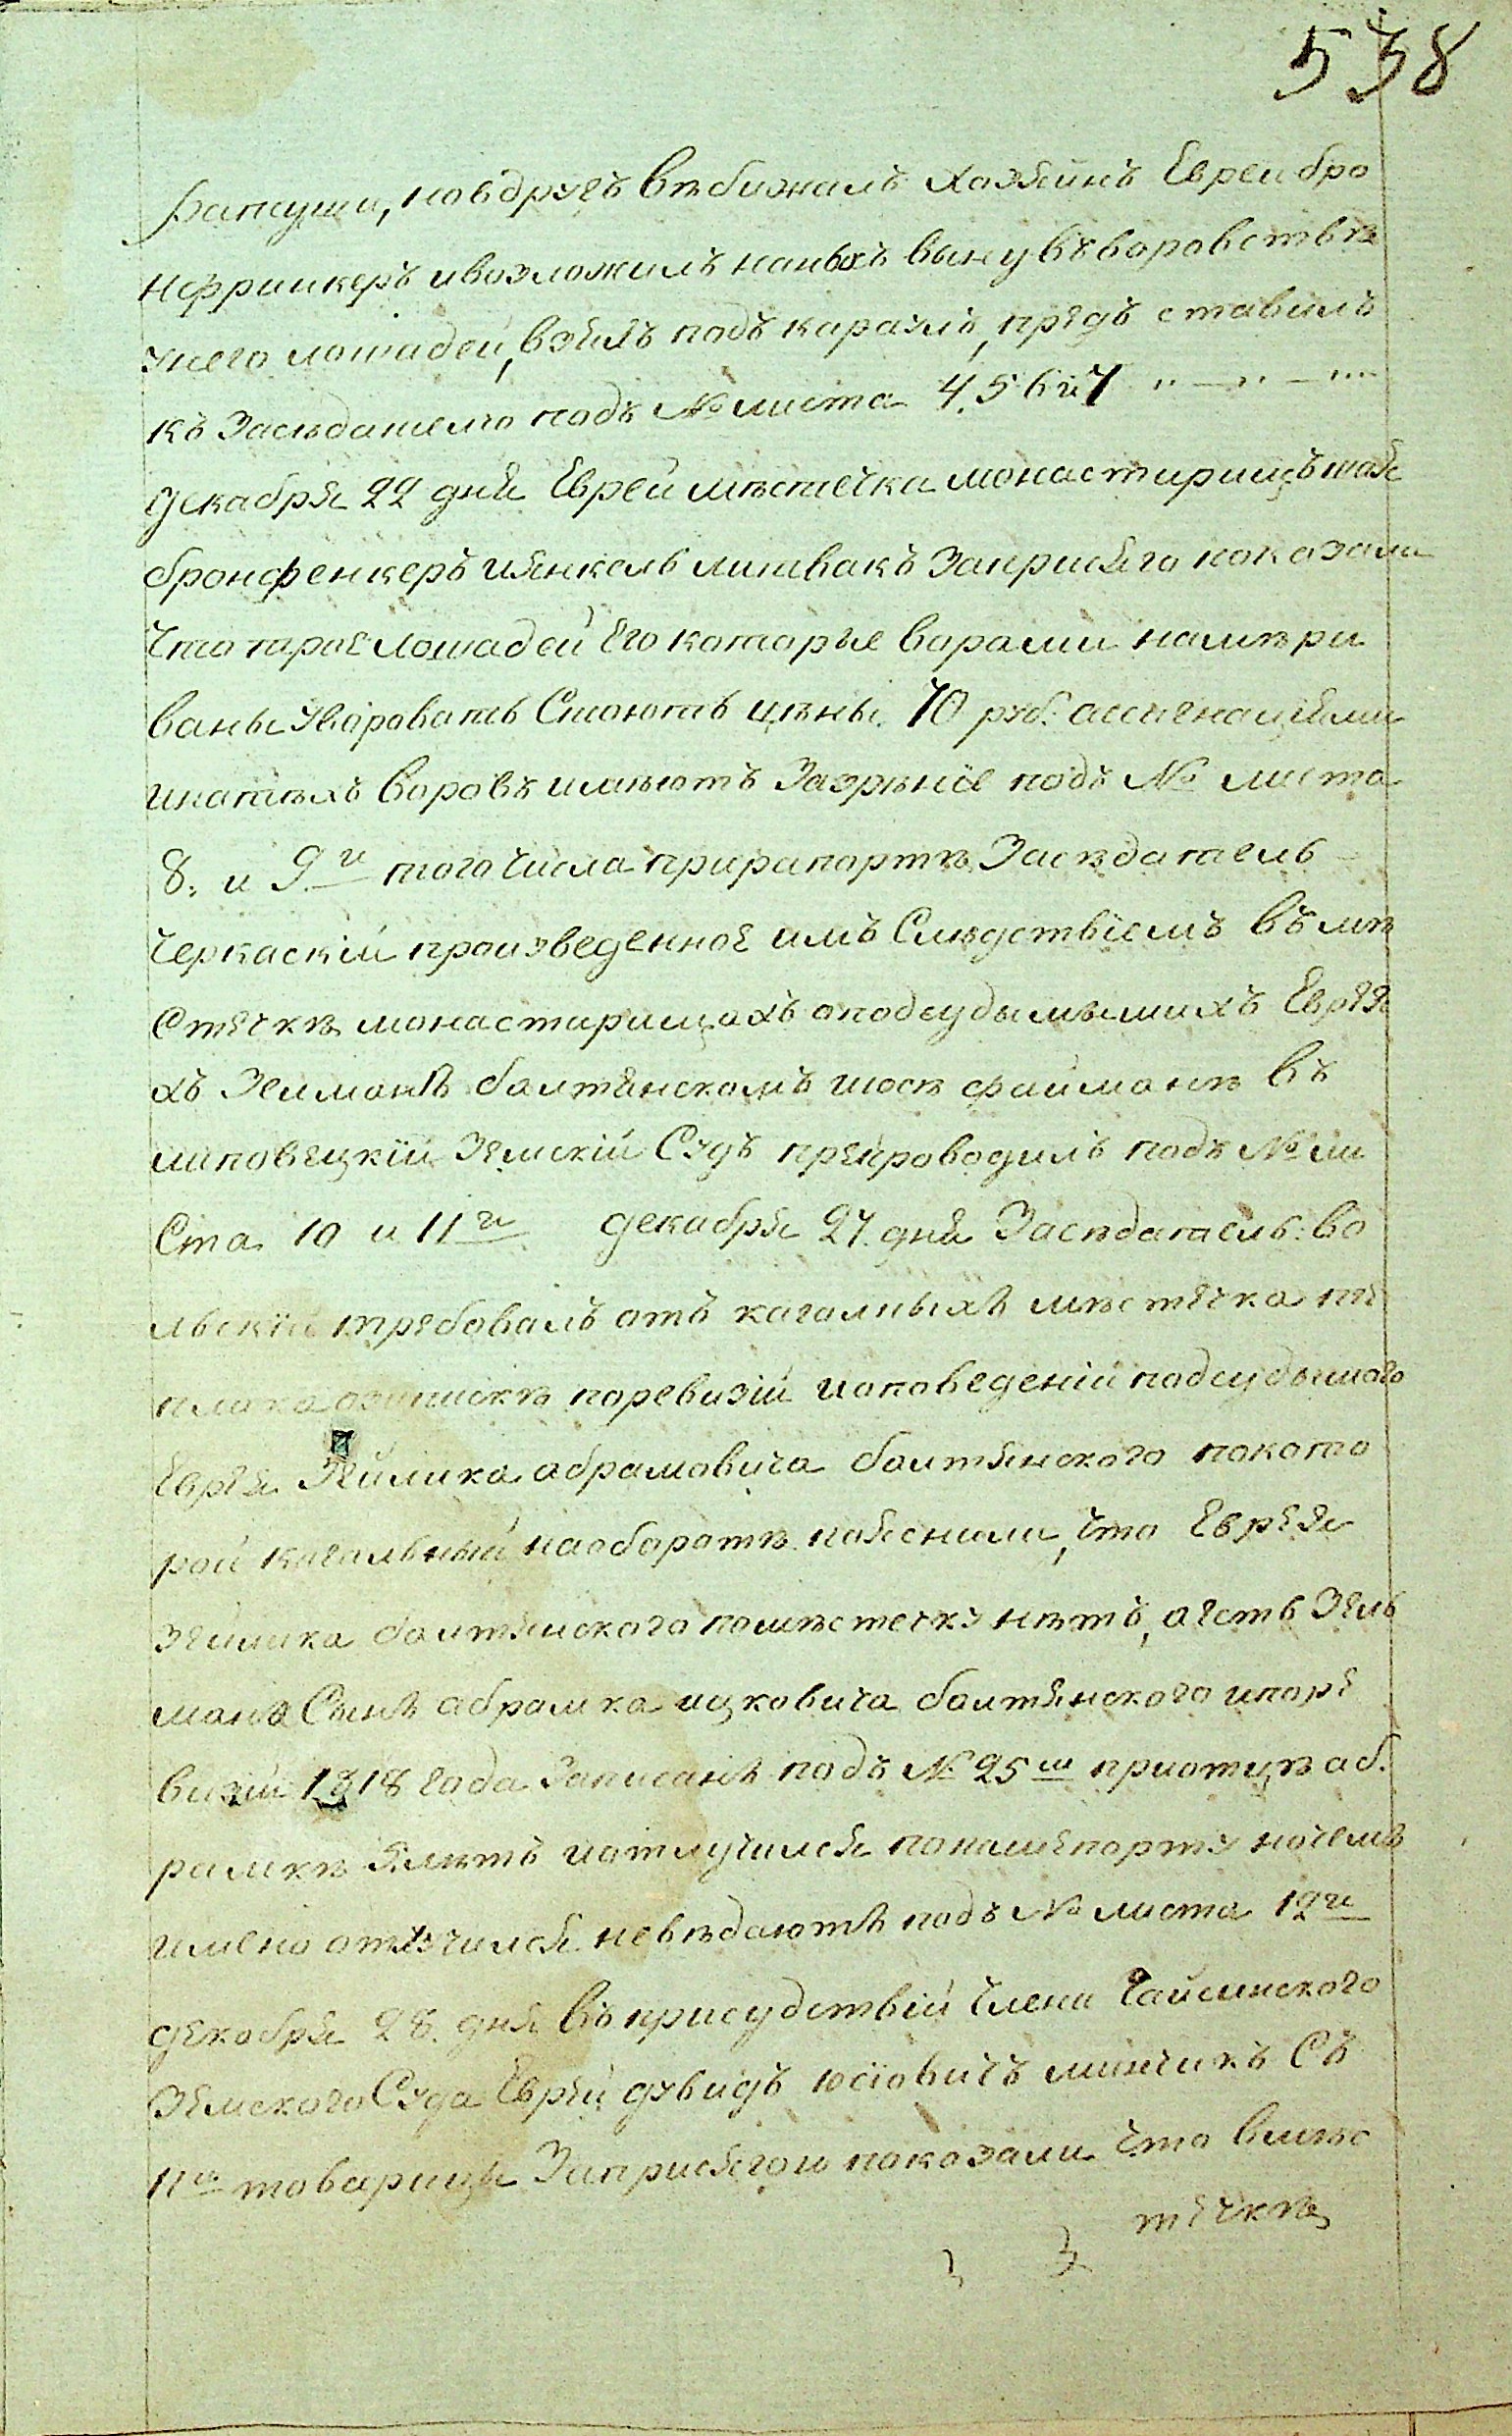 538
рапуши, но вдругъ вѣбижалъ хозяинъ Еврей бро
нфринкеръ и возложилъ на ныхъ выну въ воровствѣ
у него лошадей, взялъ подъ караулъ, предъ ставилъ
къ Засѣдателю подъ № листа 4. 5 6 и 7
декабря 22 дня Еврей мѣстечка монастирищъ шая
бронфенкеръ и янкель литвакъ Заприсяго показали
что трое лошадей Его которые ворами намѣри
ваны уворовать Стоютъ цѣны 70 руб: ассигнацiями
и на тѣхъ воровъ имѣютъ Заэрѣнiе подъ № листа
8. и 9.и того числа при рапортѣ Засѣдатель
черкаскiй произведенное имъ Слѣдствiемъ въ мѣ
стечкѣ монастирищахъ о подсудымыми хъ Еврея
хъ Зелманѣ балтянскомъ и iосѣ файманѣ въ
липовецкiй Земскiй Судъ препроводилъ подъ № ли
Ста 10 и 11и декабря 27. дня Засѣдатель во
льскiй требовалъ отъ кагалныхъ мѣстечка те
плика о зъпискѣ по ревизiй и о поведенiй подсудымого
Еврея Зейлика абрамовича балтянского по кото
рой кагальный на оборотѣ пояснили, что Еврея
Зейлика балтянского по мѣстечку нѣтъ, а есть Зель
мана Сынъ абрамка ицковича балтянского и по ре
визiй 1818 года Записанъ подъ № 25ш при отцѣ аб.
рамкѣ лѣтъ и отлучился по пашепорту но чемъ
имено отлучился не вѣдаютъ подъ № листа 12и
декабря 28. дня въ присудствiй члена Гайсинского
Земского Суда Еврей дувидъ юсiовичъ минчикъ Съ
11и товарищи Заприсягою показали что въ мѣс
течкѣ